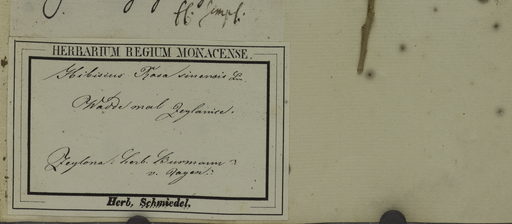 fl. simpl.
HERBARIUM REGIUM MONACENSE.
Hibiscus Rosa sinensis Lin
Wadde mal Zeylanice.
Zeylona. herb. Burmann?
v. Royen?
Herb. Schmiedel.